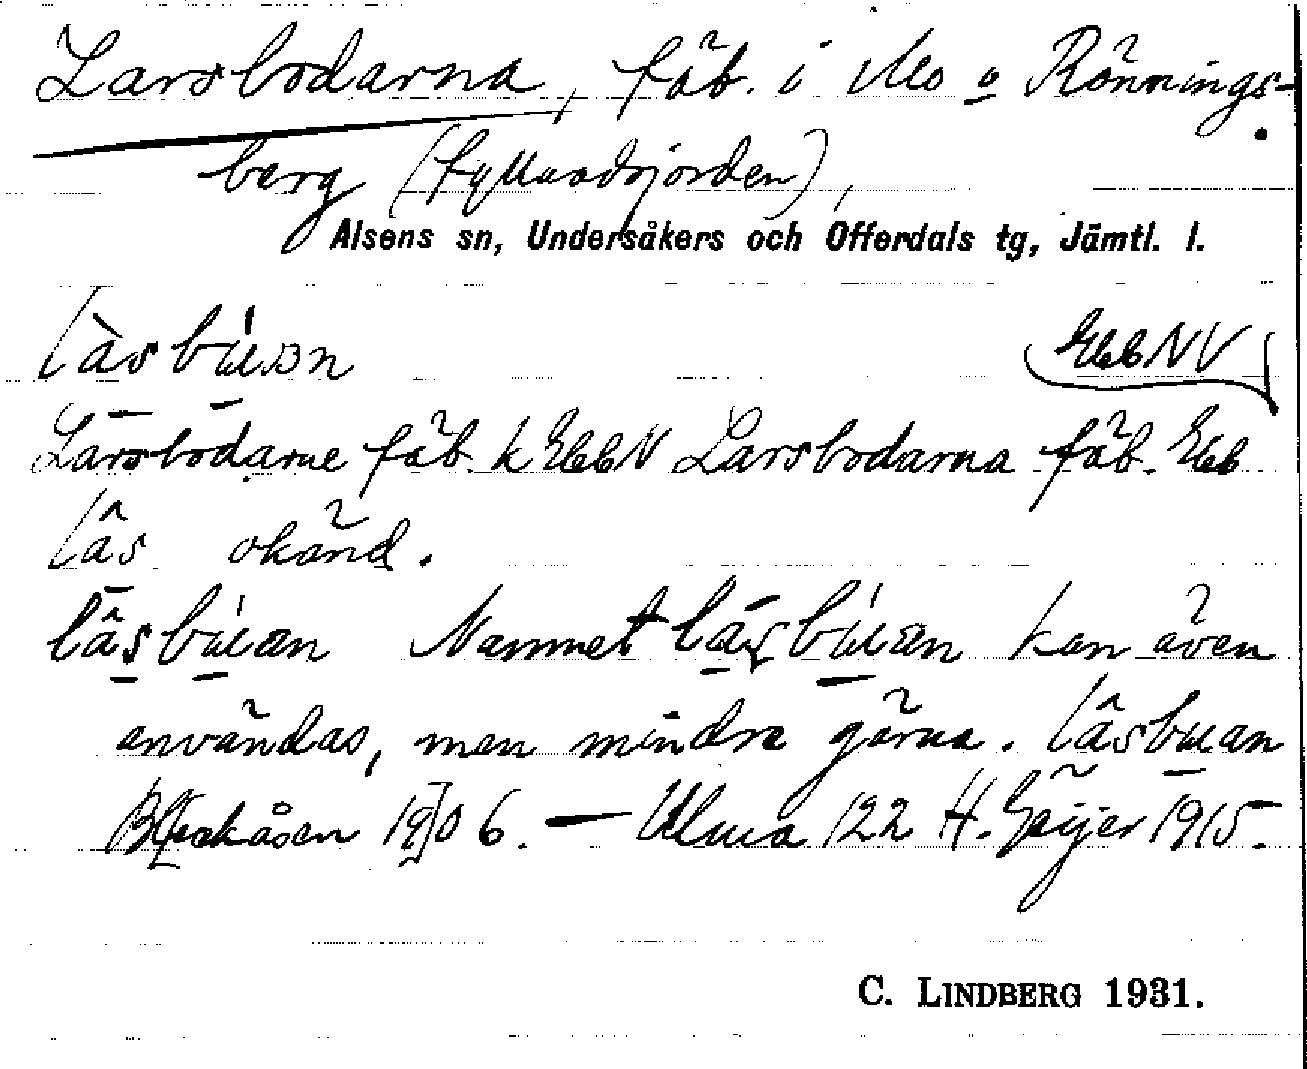 Larsbodarna, fäb. i Mo o Rönnings-
berg (Lyttandsjorden),
Alsens sn, Undersåkers och Offerdals tg, Jämtl. l.
làsbúɯan EkbNV
Larsbodarne fäb. k EkbN Larsbodarna fäb. Ekb
lâs okänd.
lâsbúɯan Namnet lāsbúɯan kan även
användas, men mindre gärna. lâsbuan
Bleckåsen 1906. — Ulma 122 H. Geijer 1915.
C. LINDBERG 1931.